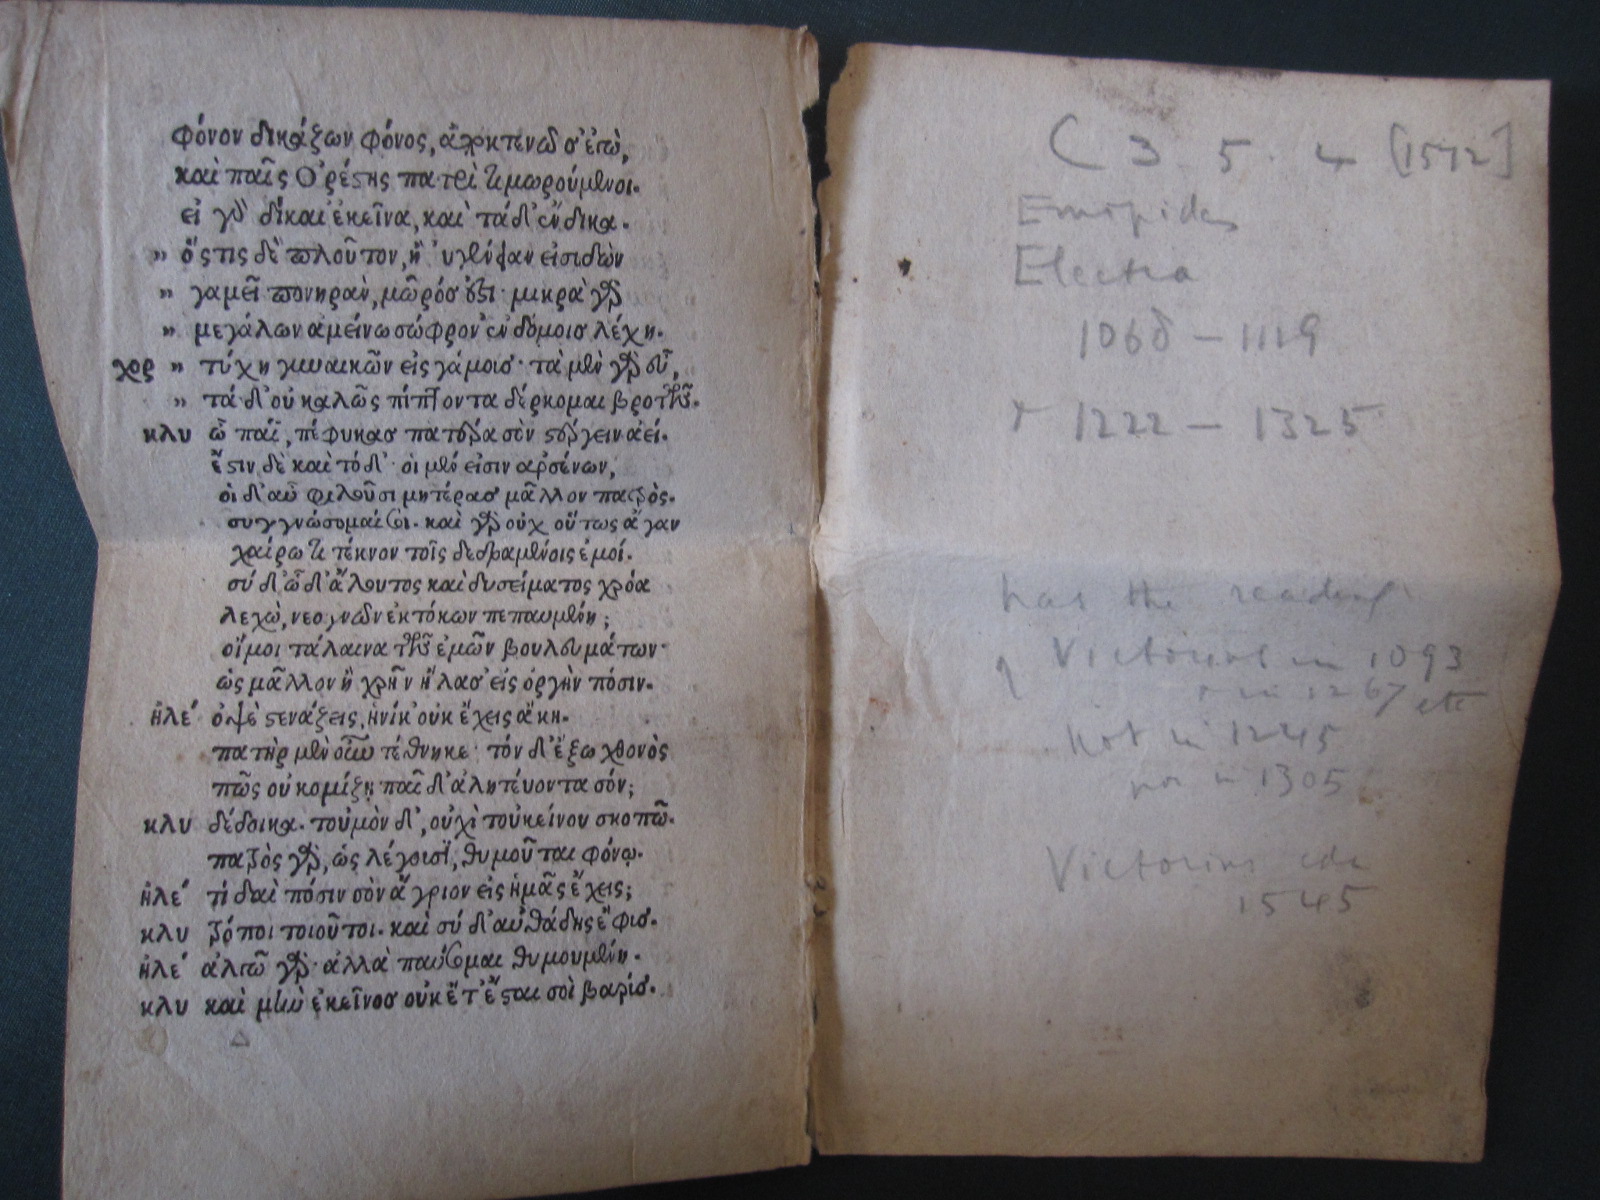 φόνον δικάζων φόνος, ἀποκτενῶ σ' ἐγὼ,
καὶ παῖς Ὀρέστης πατρὶ τιμωρούμενοι.
εἰ γὰρ δίκαι' ἐκεῖνα, καὶ τά δ' ἔνδικα.
„ ὅς τις δὲ πλοῦτον, ἢ 'υγένειαν εἰσιδὼν
„ γαμεῖ πονηρὰν, μῶρός ἐστι· μικρὰ γὰρ
„ μεγάλων ἀμείνω σώφρον' ἐν δόμοις λέχη.
χορ „ τύχη γυναικῶν εἰς γάμους· τὰ μὲν γὰρ εὖ,
„ τά δ' οὐ καλῶς πίπτοντα δέρκομαι βροτῶν.
κλυ ὦ παῖ, πέφυκας πατέρα σὸν στέργειν ἀεί.
ἔστιν δὲ καὶ τό δ'· οἱ μέν εἰσιν ἀρσένων,
οἱ δ' αὖ φιλοῦσι μητέρας μᾶλλον πατρός.
συγγνώσομαί σοι. καὶ γὰρ οὐχ οὕτως ἄγαν
χαίρω τι τέκνον τοῖς δεδραμένοις ἐμοί.
σύ δ' ὧδ' ἄλουτος καὶ δυσείματος χρόα
λεχὼ, νεογνῶν ἐκ τόκων πεπαυμένη;
οἴμοι τάλαινα τῶν ἐμῶν βουλευμάτων·
ὡς μᾶλλον ἢ χρῆν ἤλασ' εἰς ὀργὴν πόσιν.
ἠλέ ὀψὲ στενάζεις, ἡνίκ' οὐκ ἔχεις ἄκη.
πατὴρ μὲν οὖν τέθνηκε· τόν δ' ἔξω χθονὸς
πῶς οὐ κομίζῃ παῖδ' ἀλητεύοντα σόν;
κλυ δέδοικα. τοὐμὸν δ', οὐχὶ τοὐκείνου σκοπῶ.
πατρὸς γὰρ, ὡς λέγουσι, θυμοῦται φόνῳ.
ἠλέ τί δαὶ πόσιν σὸν ἄγριον εἰς ἡμᾶς ἔχεις;
κλυ τρόποι τοιοῦτοι. καὶ σύ δ' αὐθάδης ἔφυς.
ἠλέ ἀλγῶ γάρ· ἀλλὰ παύσομαι θυμουμένη.
κλυ καὶ μὴν ἐκεῖνος οὐκ ἔτ' ἔσται σοὶ βαρύς.
C 3. 5. 4 [1512]
Euripides
Electra
1068 – 1119
+ 1222 – 1325
has the reading
of Victorius in 1093
+ in 1267 etc
not in 1245
nor in 1305
Victorius edn
1545